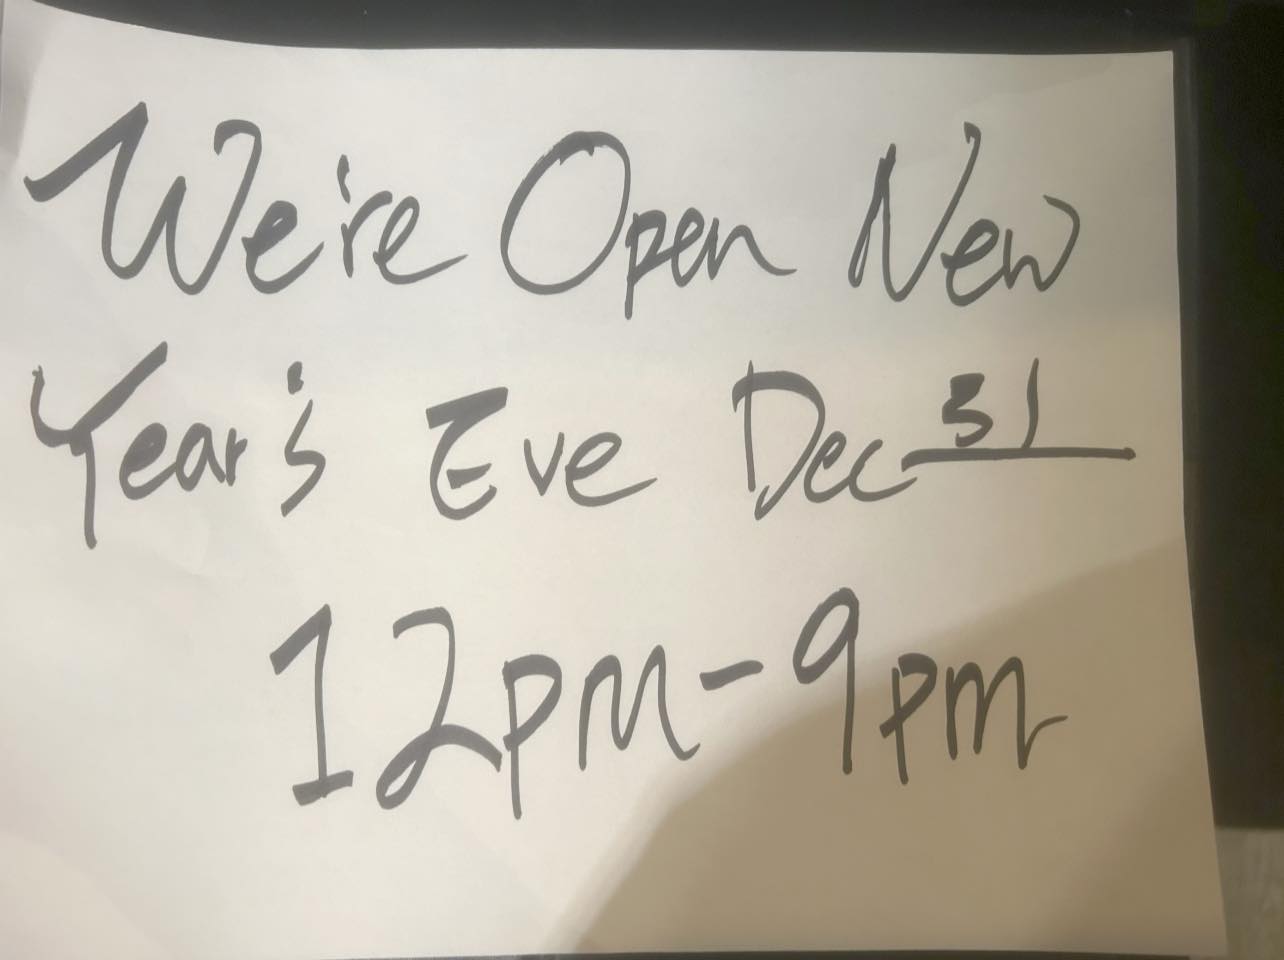 We're Open New
Year's Eve Dec 31
12pm-9pm